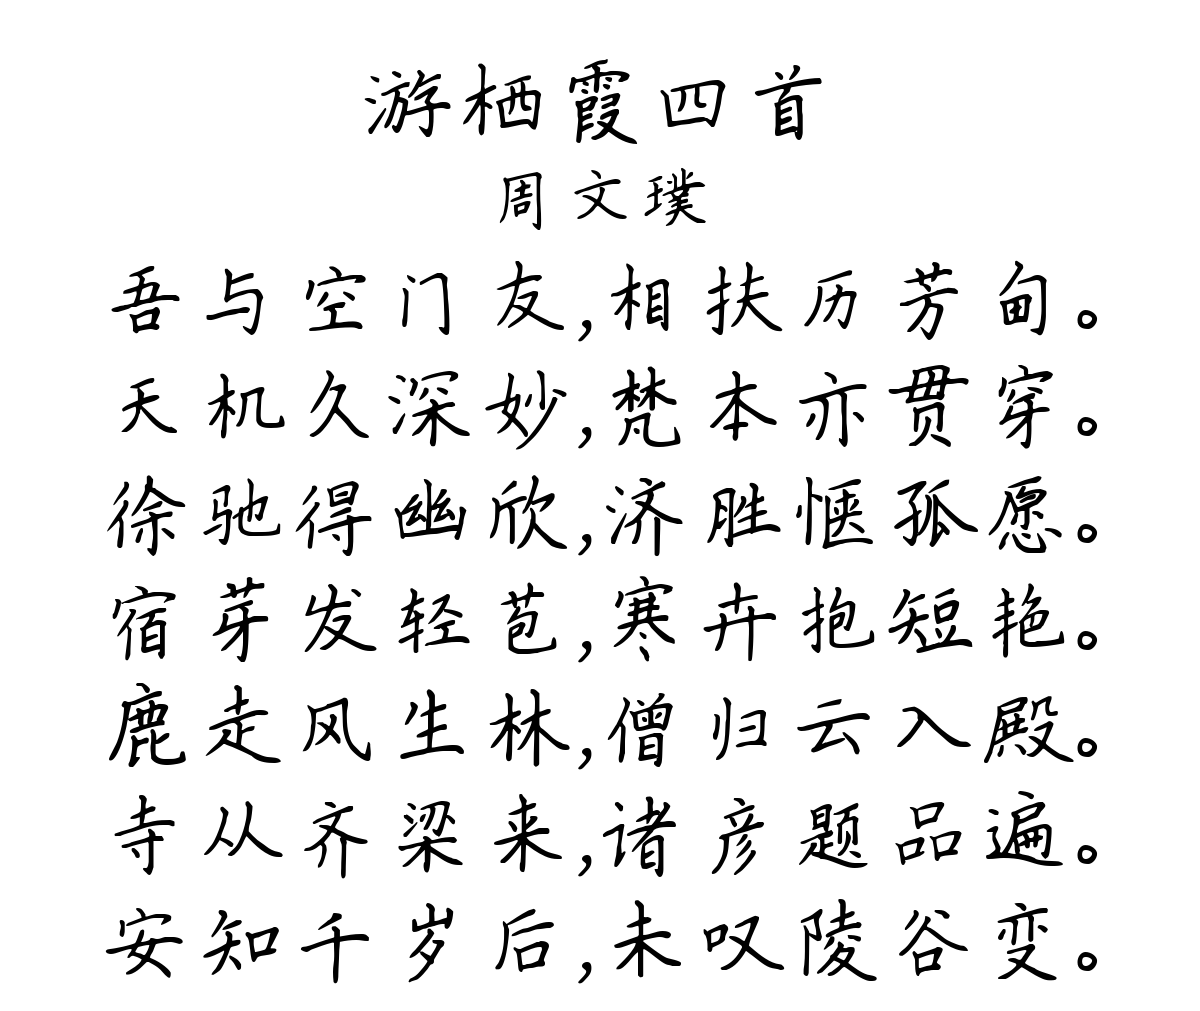 游栖霞四首
周文璞
吾与空门友,相扶历芳甸。
天机久深妙,梵本亦贯穿。
徐驰得幽欣,济胜惬孤愿。
宿芽发轻苞,寒卉抱短艳。
鹿走风生林,僧归云入殿。
寺从齐梁来,诸彦题品遍。
安知千岁后,未叹陵谷变。